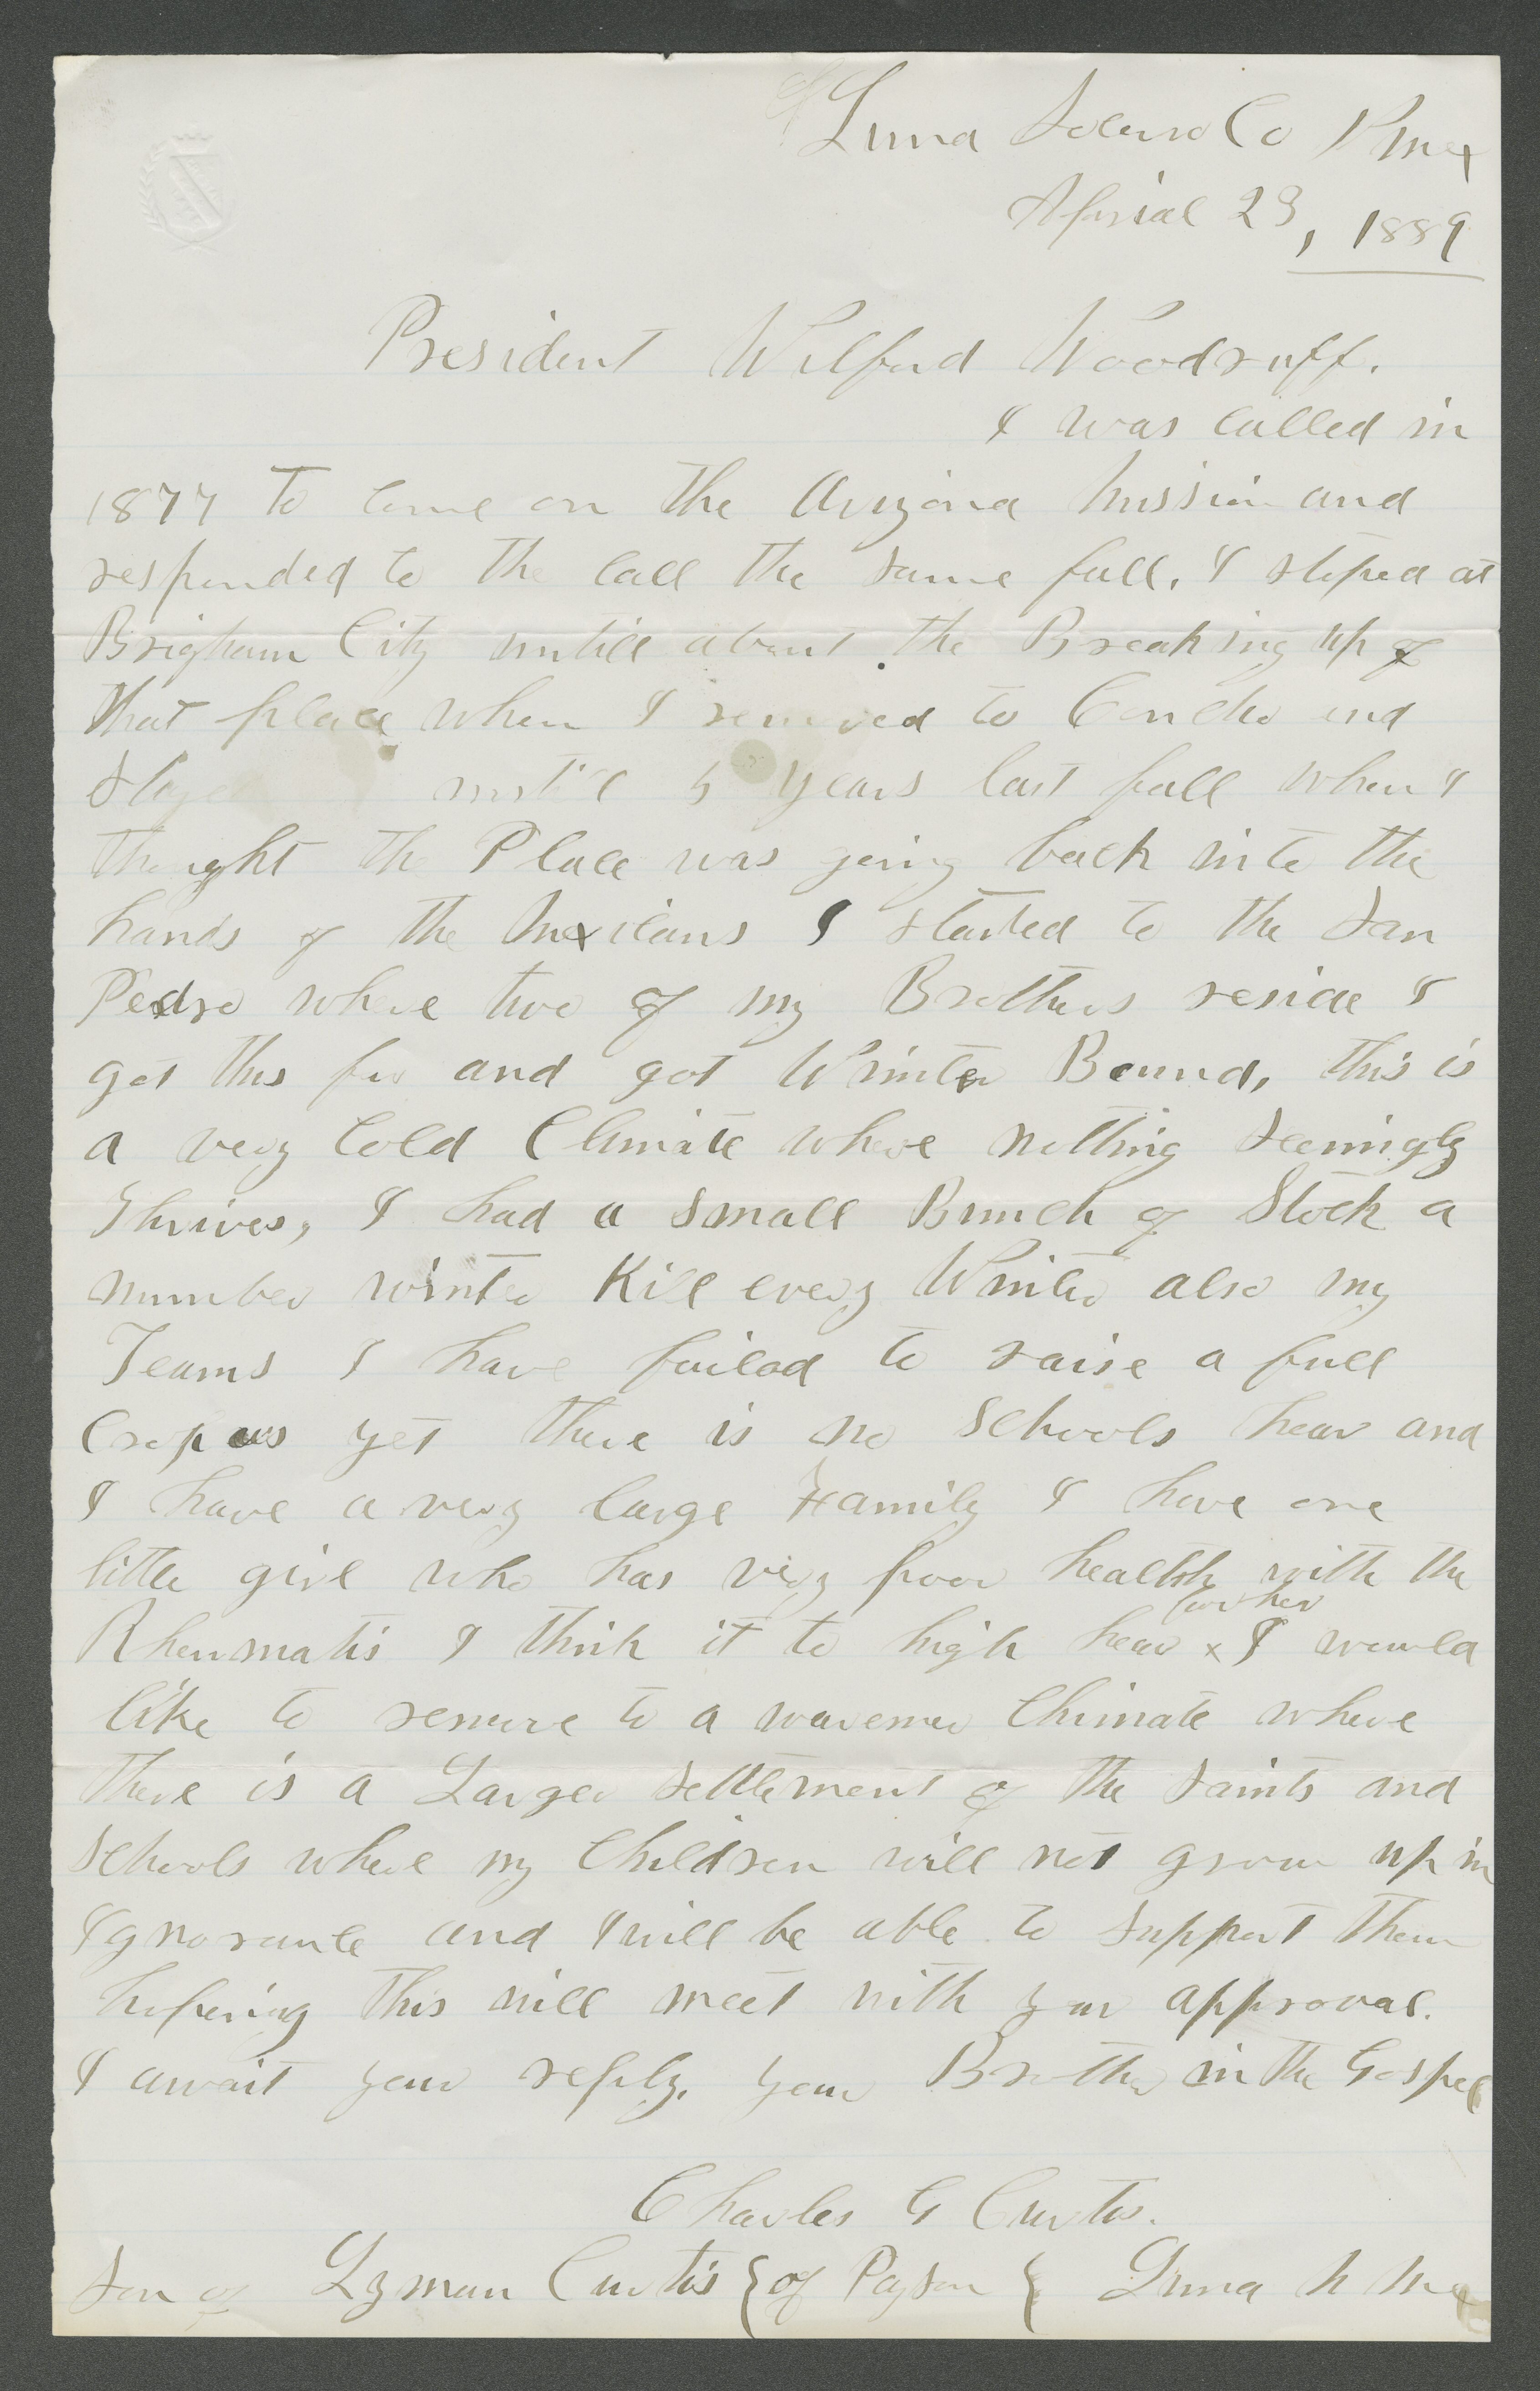 Luna Socorro Co N Mex
Aprial 23, 1889
President Wilford Woodruff.
I was called in
1877 to come on the Arizona Mission and
responded to the call the same fall, I stoped at
Brigham City untill about the Breaking up of
that place when I removed to Concho and
Stayed untill 5 years last fall when I
thought the Place was going back into the
hands of the Mexicans I started to the San
Pedro where two of my Brothers reside I
got this far and got Winter Bound, this is
a very Cold Climate where nothing Seemigly
Thrives, I had a Small Bunch of Stock a
number winter Kill every Winter also my
Teams I have failed to raise a full
Crop as yet there is no Schools hear and
I have a very large Family I have one
little girl who has very poor health with the
Rheumatis I think it to high hear × for her I would
like to remove to a waremer Climate where
there is a Larger Settlement of the Saints and
Schools where my Children will not grow up in
Ignorance and I will be able to Support them
hopeing this will meet with your approval.
I await your reply. your Brother in the Gospel
Charles G Curtis.
Son of Lyman Curtis { of Payson { Luna N Mex